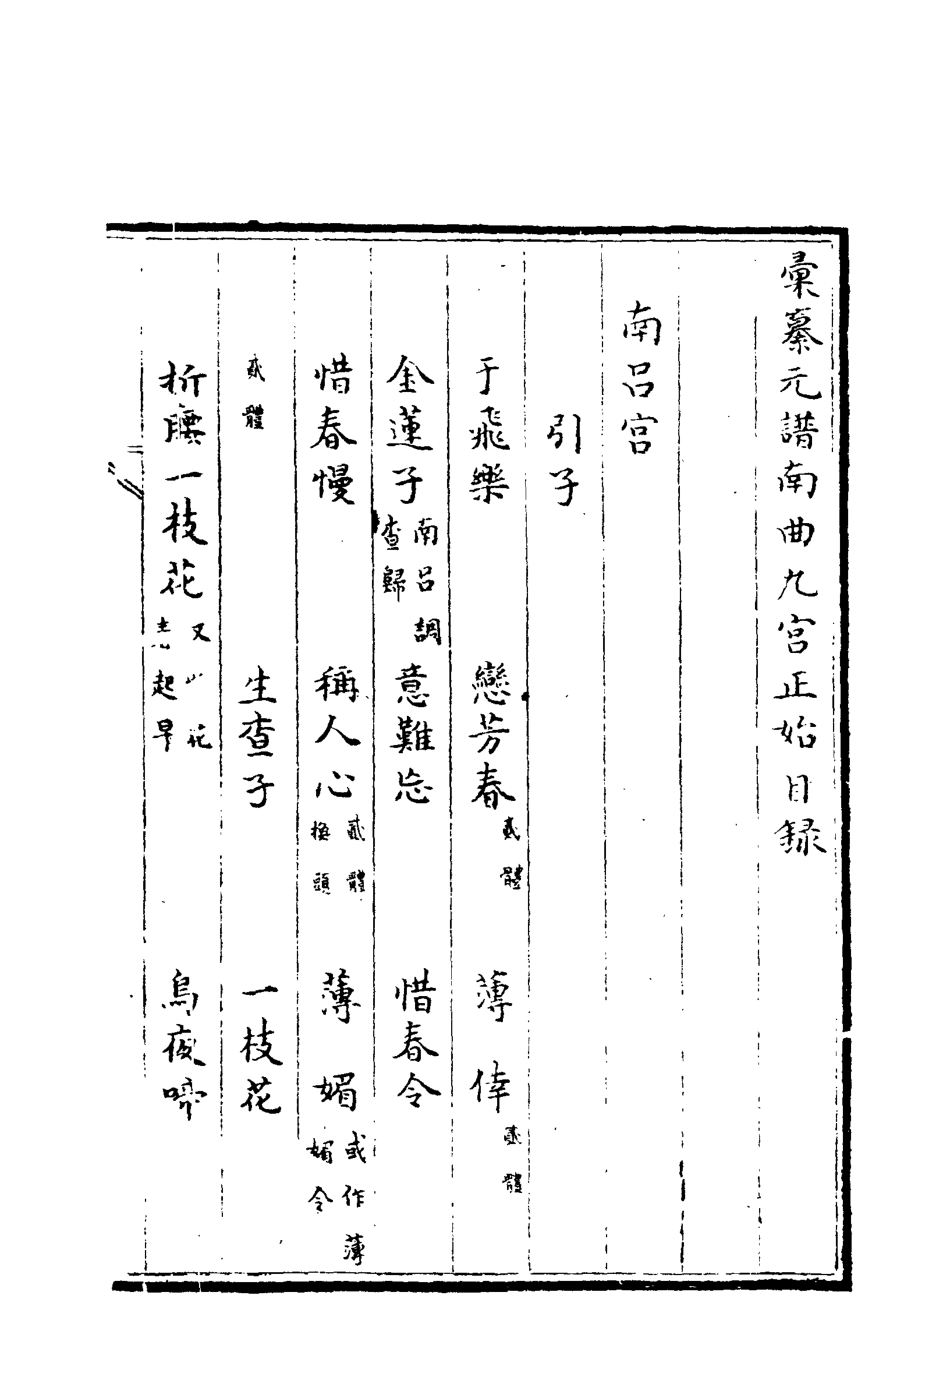 彙纂元譜南曲九宮正始目録
南呂宮
引子
于飛樂　戀芳春貳體　薄倖貳體
金蓮子南呂調查歸　意難忘　惜春令
惜春慢　稱人心貳體換頭　薄媚或作薄媚令
貳體　生查子　一枝花
折腰一枝花又　花　起早　烏夜啼